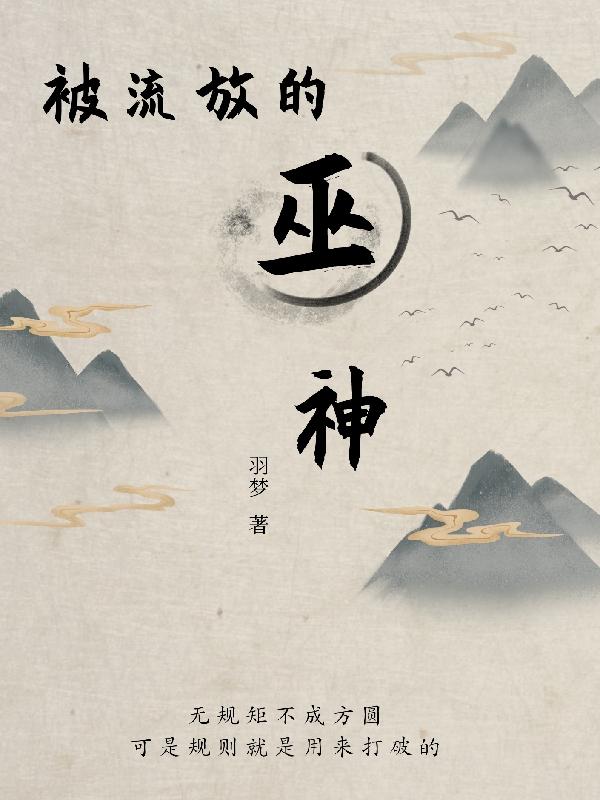 被流放的
巫
神
羽梦 著
无规矩不成方圆
可是规则就是用来打破的